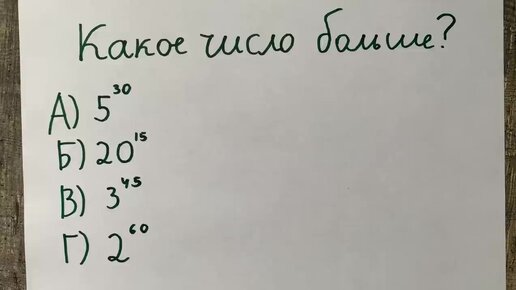 Какое число больше?
А) 5³⁰
Б) 20¹⁵
В) 3⁴⁵
Г) 2⁶⁰